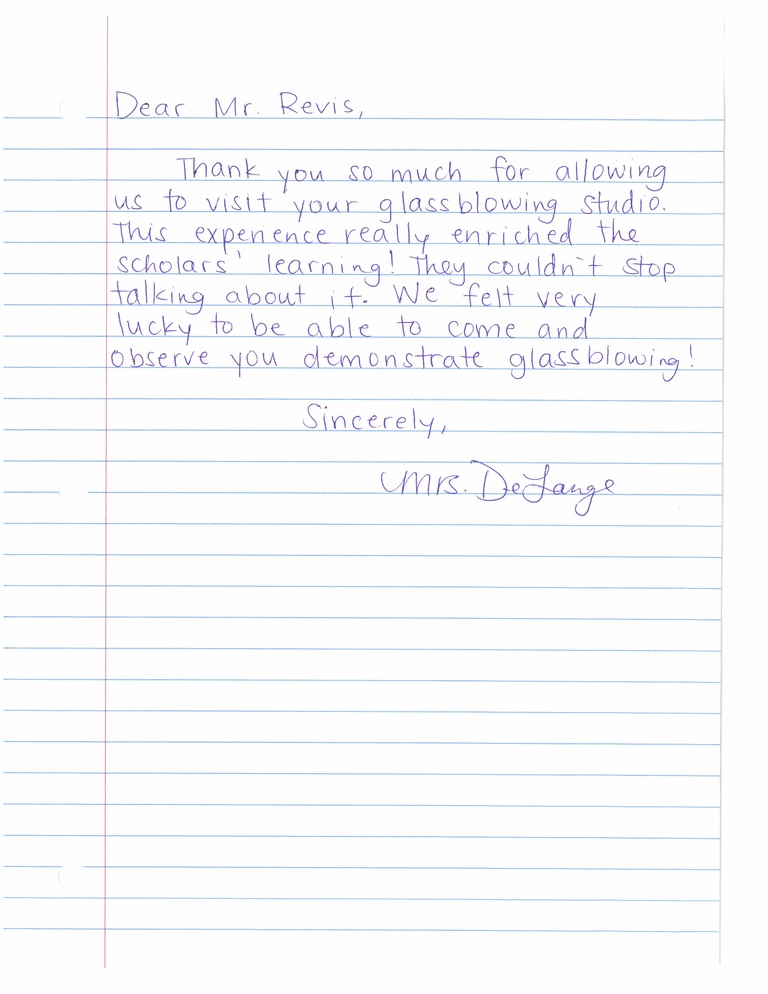 Dear Mr. Revis,
Thank you so much for allowing
us to visit your glassblowing studio.
This experience really enriched the
scholars' learning! They couldn't stop
talking about it. We felt very
lucky to be able to come and
observe you demonstrate glassblowing!
Sincerely,
Mrs. DeLange